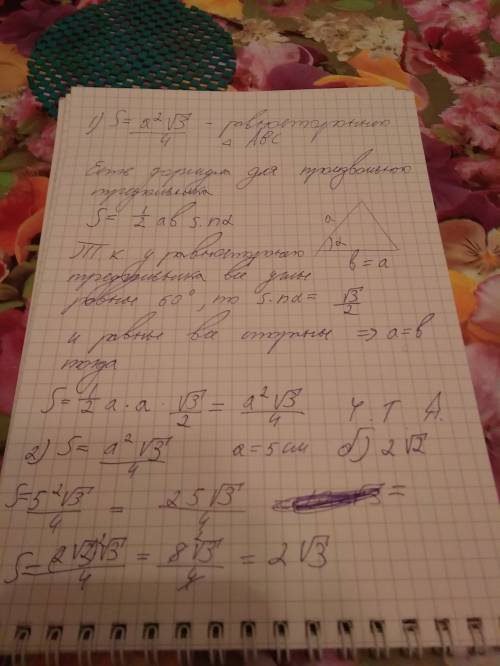 1) S = a²√3/4 - равностороннего
△ ABC
Есть формула для произвольного
треугольника
S = 1/2 ab sin α
a
α
b = a
Т.к у равностороннего
треугольника все углы
равны 60°, то sin α = √3/2
и равны все стороны => a = b
тогда
S = 1/2 a · a · √3/2 = a²√3/4 Ч. Т. Д.
2) S = a²√3/4 a = 5 см б) 2√2
S = 5²√3/4 = 25√3/4 =
S = (2√2)²√3/4 = 8√3/4 = 2√3